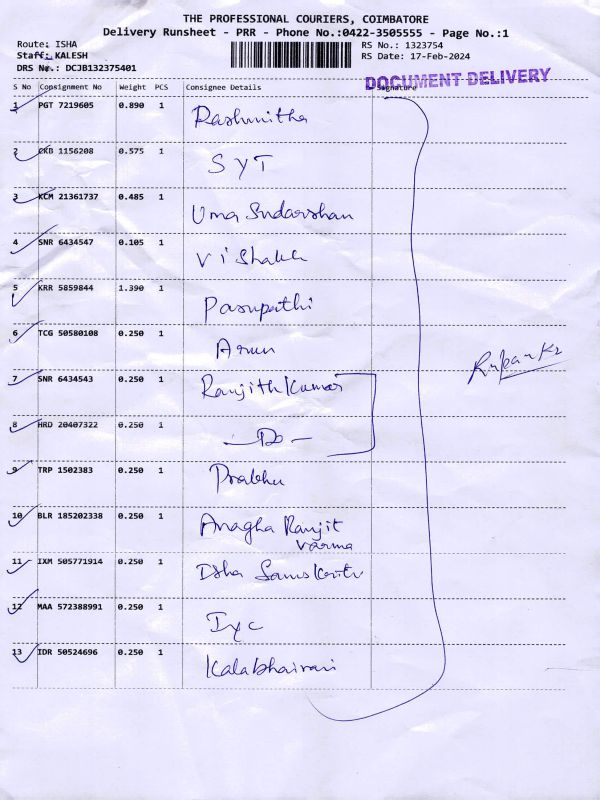 THE PROFESSIONAL COURIERS, COIMBATORE
Delivery Runsheet - PRR - Phone No.:0422-3505555 - Page No.:1
Route: ISHA
RS No.: 1323754
Staff: KALESH
RS Date: 17-Feb-2024
DRS No.: DCJB132375401
DOCUMENT DELIVERY
S No Consignment No Weight PCS Consignee Details Signature
1 PGT 7219605 0.890 1 Rashmitha
2 CKB 1156208 0.575 1 SYT
3 KCM 21361737 0.485 1 Uma Sudarshan
4 SNR 6434547 0.105 1 Vishakh
5 KRR 5859844 1.390 1 Pasupathi
6 TCG 50580108 0.250 1 Arun
7 SNR 6434543 0.250 1 Ranjith Kumar
8 HRD 20407322 0.250 1 - Do -
9 TRP 1502383 0.250 1 Prabhu
10 BLR 185202338 0.250 1 Anagha Ranjit
Varma
11 IXM 505771914 0.250 1 Isha Samskriti
12 MAA 572388991 0.250 1 Iyc
13 IDR 50524696 0.250 1 Kalabhairavi